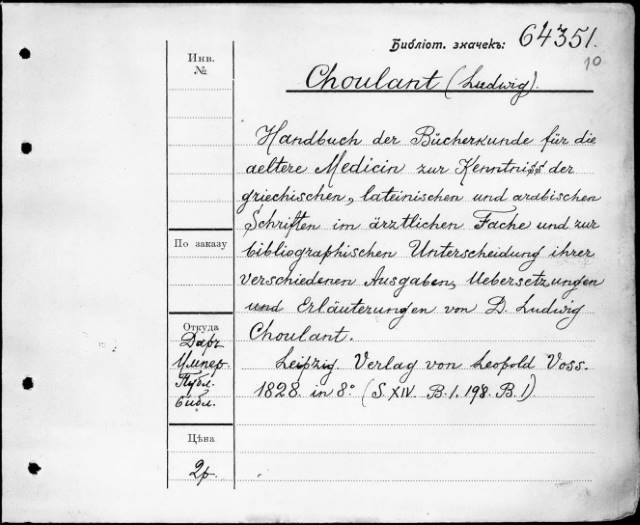 Библіот. значекъ: 64351.
10
Инв.
№
Choulant (Ludwig).
Handbuch der Bücherkunde für die
aeltere Medicin zur Kenntniss der
griechischen, lateinischen und arabischen
Schriften im ärztlichen Fache und zur
bibliographischen Unterscheidung ihrer
verschiedenen Ausgaben, Uebersetzungen
und Erläuterungen von D. Ludwig
Choulant.
Leipzig. Verlag von Leopold Voss.
1828. in 8° (S. XIV. B. 1. 198. B. 1)
По заказу
Откуда
Даръ
Импер.
Публ.
библ.
Цѣна
2р.